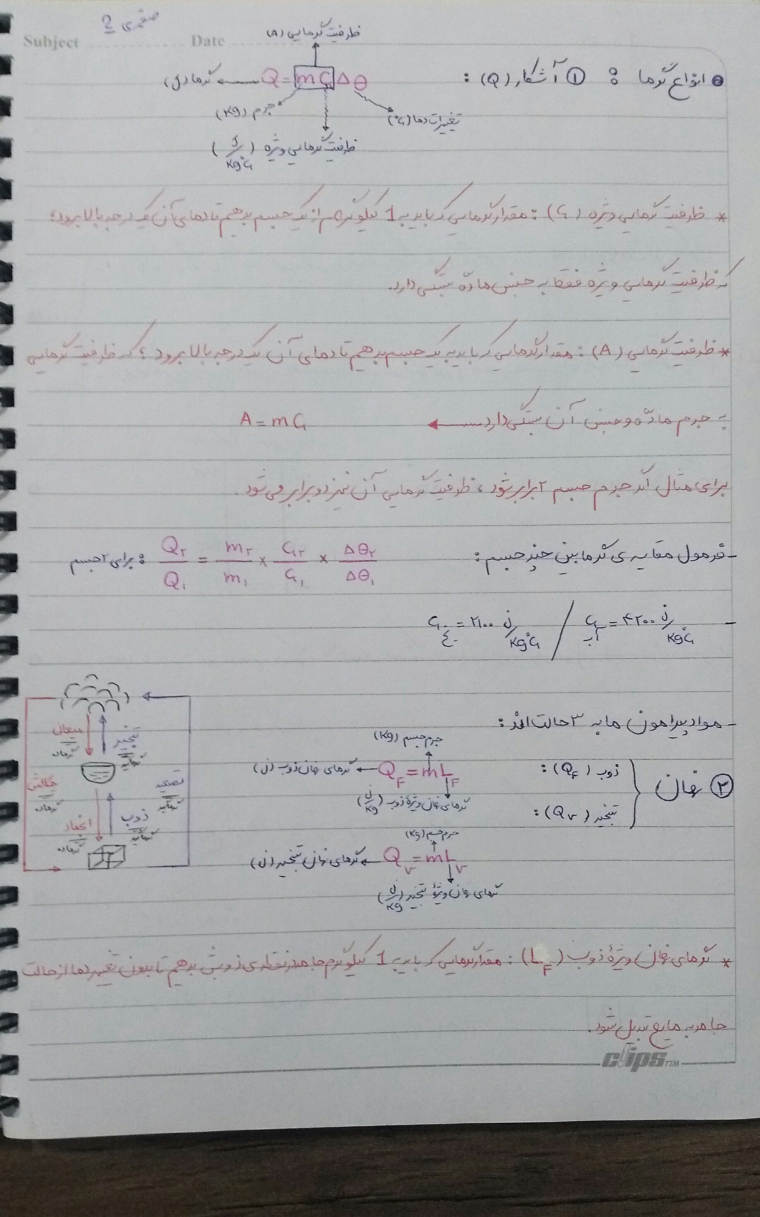 صفحه‌ی 2
Subject Date
ظرفیت گرمایی (A)
● انواع گرما : ① آشکار (Q) :
Q = mCΔθ ← گرما (J)
جرم (Kg)
تغییرات دما (°C)
ظرفیت گرمایی ویژه (J/Kg°C)
* ظرفیت گرمایی ویژه (C) : مقدار گرمایی که باید به 1 کیلوگرم از یک جسم بدهیم تا دمای آن یک درجه بالا برود؛
که ظرفیت گرمایی ویژه فقط به جنس ماده بستگی دارد.
* ظرفیت گرمایی (A) : مقدار گرمایی که باید به یک جسم بدهیم تا دمای آن یک درجه بالا برود ؛ که ظرفیت گرمایی
به جرم ماده و جنس آن بستگی دارد ← A = mC
برای مثال اگر جرم جسم ۲ برابر شود ، ظرفیت گرمایی آن نیز دو برابر می شود.
- فرمول مقایسه ی گرما بین چند جسم :
برای ۲ جسم : Q۲/Q۱ = m۲/m۱ × C۲/C۱ × Δθ۲/Δθ۱
- C آب = ۴۲۰۰ J/Kg°C / C یخ = ۲۱۰۰ J/Kg°C
- مواد پیرامون ما به ۳ حالت اند :
② نهان
ذوب (QF) :
جرم جسم (Kg)
QF = mLF ← گرمای نهان ذوب (J)
گرمای نهان ویژه ذوب (J/Kg)
تبخیر (Qv) :
جرم جسم (Kg)
Qv = mLv ← گرمای نهان تبخیر (J)
گرمای نهان ویژهٔ تبخیر (J/Kg)
میعان
گرماده
تبخیر
گرماگیر
چگالش
گرماده
تصعید
گرماگیر
انجماد
گرماده
ذوب
گرماگیر
* گرمای نهان ویژهٔ ذوب (LF) : مقدار گرمایی که باید به 1 کیلوگرم جامد در نقطه ی ذوبش بدهیم تا بدون تغییر دما از حالت
جامد به مایع تبدیل شود.
clips